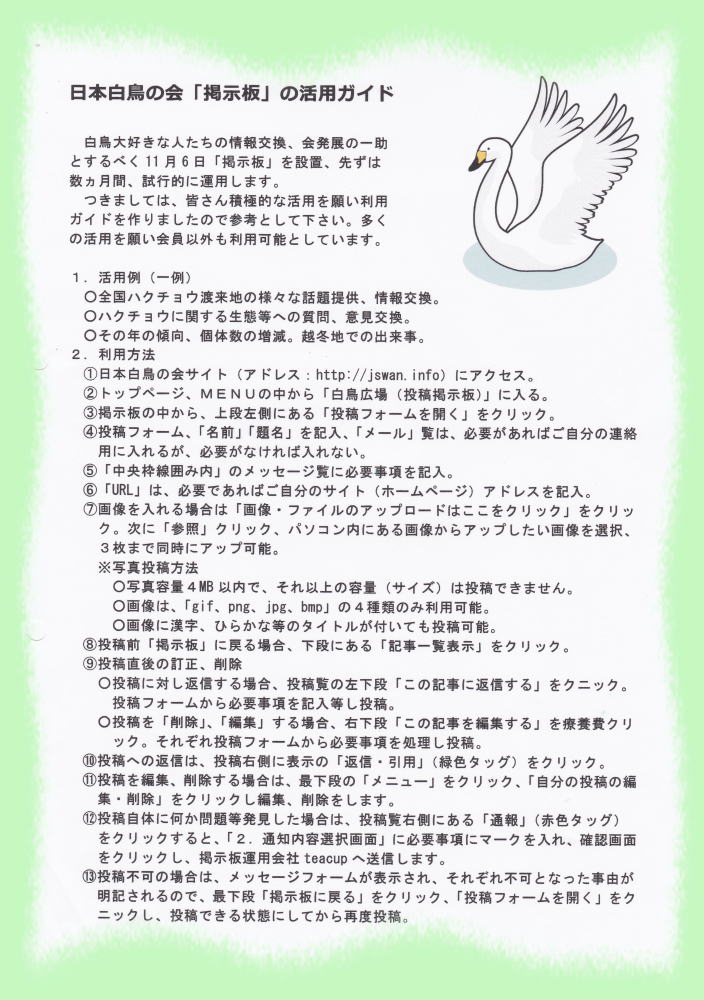 日本白鳥の会「掲示板」の活用ガイド
白鳥大好きな人たちの情報交換、会発展の一助
とするべく11月6日「掲示板」を設置、先ずは
数ヵ月間、試行的に運用します。
つきましては、皆さん積極的な活用を願い利用
ガイドを作りましたので参考として下さい。多く
の活用を願い会員以外も利用可能としています。
１．活用例（一例）
〇全国ハクチョウ渡来地の様々な話題提供、情報交換。
〇ハクチョウに関する生態等への質問、意見交換。
〇その年の傾向、個体数の増減。越冬地での出来事。
２．利用方法
①日本白鳥の会サイト（アドレス：http://jswan.info）にアクセス。
②トップページ、ＭＥＮＵの中から「白鳥広場（投稿掲示板）」に入る。
③掲示板の中から、上段左側にある「投稿フォームを開く」をクリック。
④投稿フォーム、「名前」「題名」を記入、「メール」覧は、必要があればご自分の連絡
用に入れるが、必要がなければ入れない。
⑤「中央枠線囲み内」のメッセージ覧に必要事項を記入。
⑥「URL」は、必要であればご自分のサイト（ホームページ）アドレスを記入。
⑦画像を入れる場合は「画像・ファイルのアップロードはここをクリック」をクリッ
ク。次に「参照」クリック、パソコン内にある画像からアップしたい画像を選択、
３枚まで同時にアップ可能。
※写真投稿方法
〇写真容量４MB以内で、それ以上の容量（サイズ）は投稿できません。
〇画像は、「gif、png、jpg、bmp」の４種類のみ利用可能。
〇画像に漢字、ひらかな等のタイトルが付いても投稿可能。
⑧投稿前「掲示板」に戻る場合、下段にある「記事一覧表示」をクリック。
⑨投稿直後の訂正、削除
〇投稿に対し返信する場合、投稿覧の左下段「この記事に返信する」をクニック。
投稿フォームから必要事項を記入等し投稿。
〇投稿を「削除」、「編集」する場合、右下段「この記事を編集する」を療養費クリ
ック。それぞれ投稿フォームから必要事項を処理し投稿。
⑩投稿への返信は、投稿右側に表示の「返信・引用」（緑色タッグ）をクリック。
⑪投稿を編集、削除する場合は、最下段の「メニュー」をクリック、「自分の投稿の編
集・削除」をクリックし編集、削除をします。
⑫投稿自体に何か問題等発見した場合は、投稿覧右側にある「通報」（赤色タッグ）
をクリックすると、「２．通知内容選択画面」に必要事項にマークを入れ、確認画面
をクリックし、掲示板運用会社 teacup へ送信します。
⑬投稿不可の場合は、メッセージフォームが表示され、それぞれ不可となった事由が
明記されるので、最下段「掲示板に戻る」をクリック、「投稿フォームを開く」をク
ニックし、投稿できる状態にしてから再度投稿。